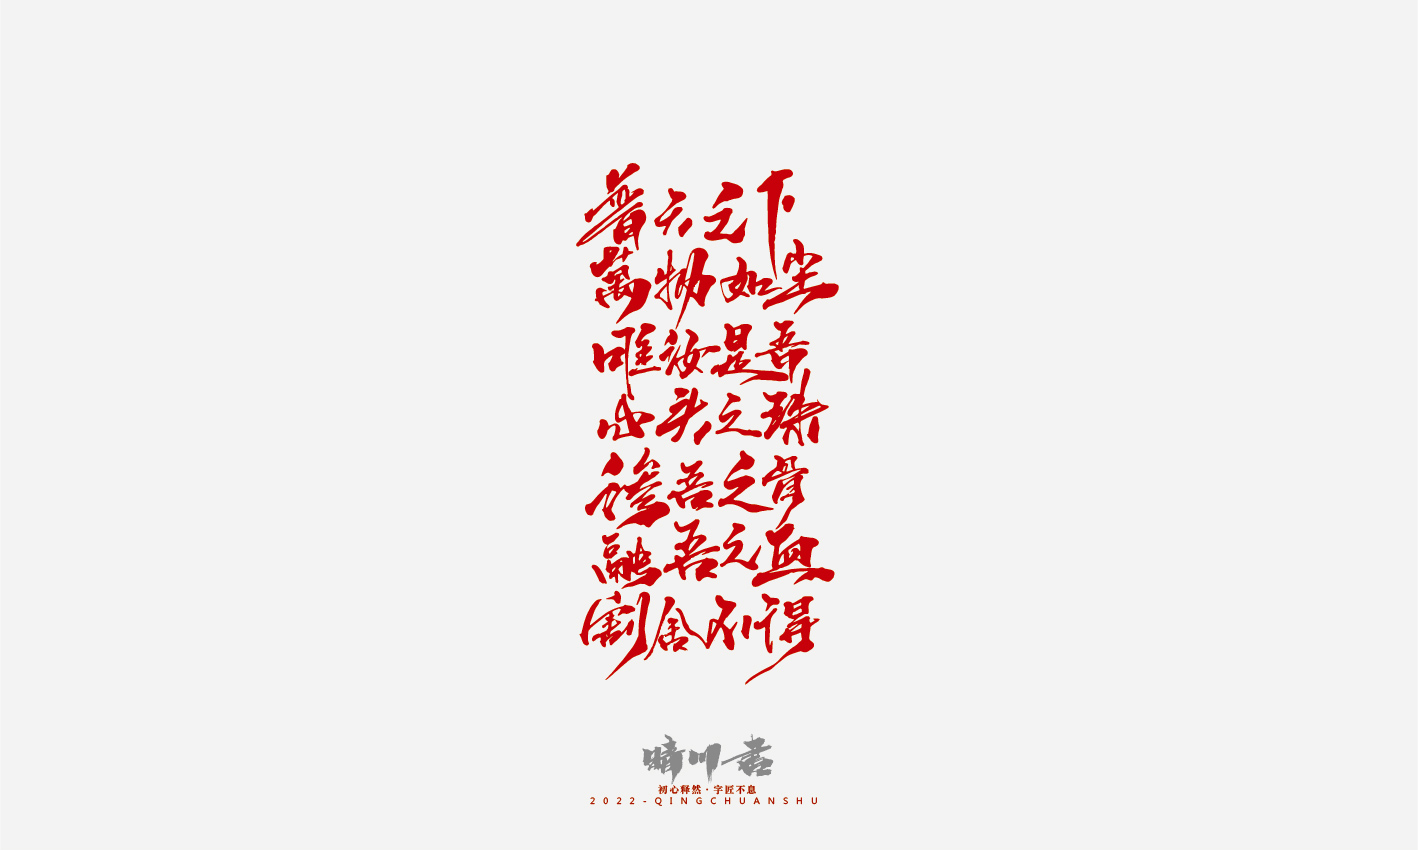 普天之下
萬物如尘
唯汝是吾
心头之珠
渗吾之骨
融吾之血
割舍不得
晴川書
初心释然·字匠不息
2022-QINGCHUANSHU